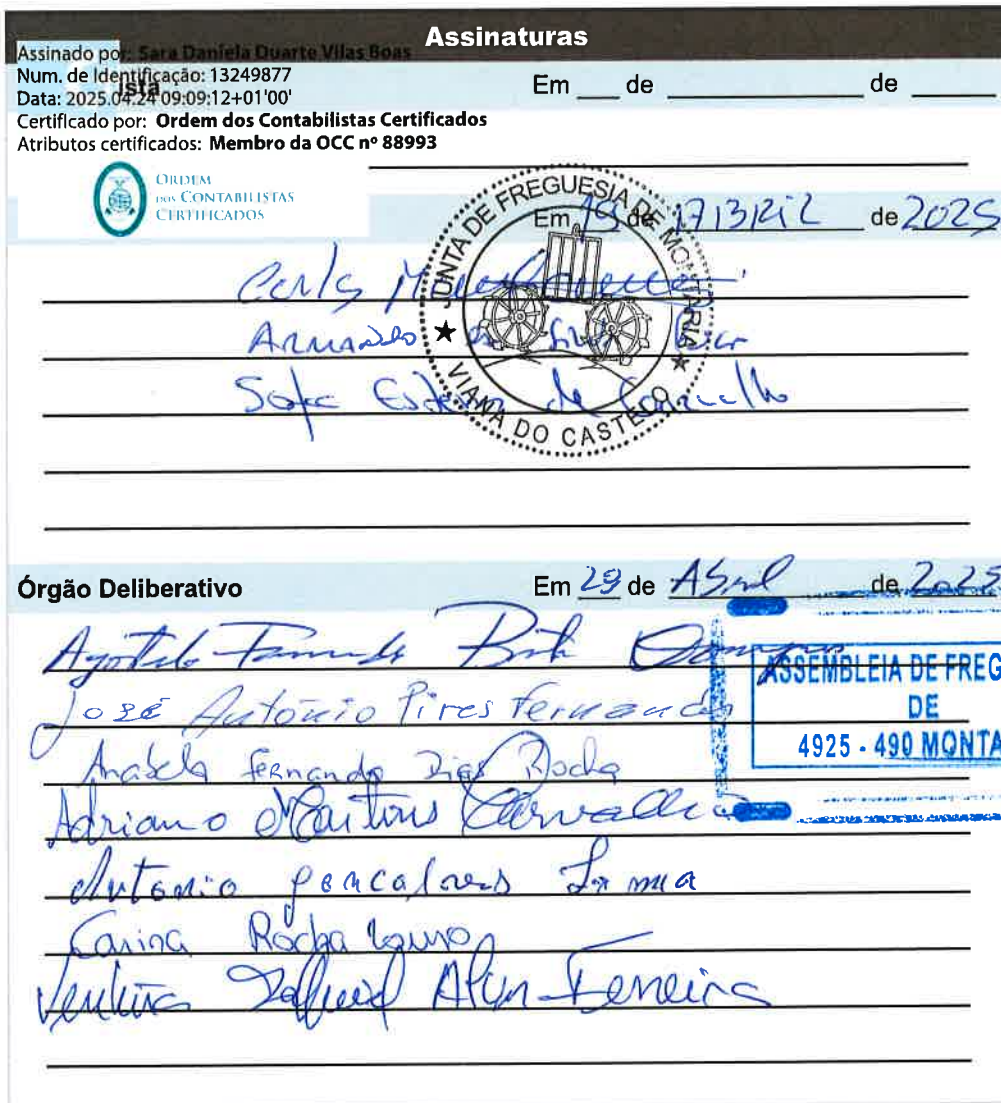 Assinaturas
Assinado por: Sara Daniela Duarte Vilas Boas
Num. de Identificação: 13249877
ista
Em ___ de ___ de ___
Data: 2025.04.24 09:09:12+01'00'
Certificado por: Ordem dos Contabilistas Certificados
Atributos certificados: Membro da OCC nº 88993
ORDEM
DOS CONTABILISTAS
CERTIFICADOS
JUNTA DE FREGUESIA DE MONTARIA
VIANA DO CASTELO
Em de de 2025
Armando da
de Carvalho
Órgão Deliberativo
Em 29 de Abril de 2025
ASSEMBLEIA DE FREG
DE
4925 - 490 MONTA
José António Pires Fernandes
Anabela Fernanda Dias Rocha
Adriano Martins Carvalho
Antonio goncalves
Carina Rocha
Ventura Alves Ferreira